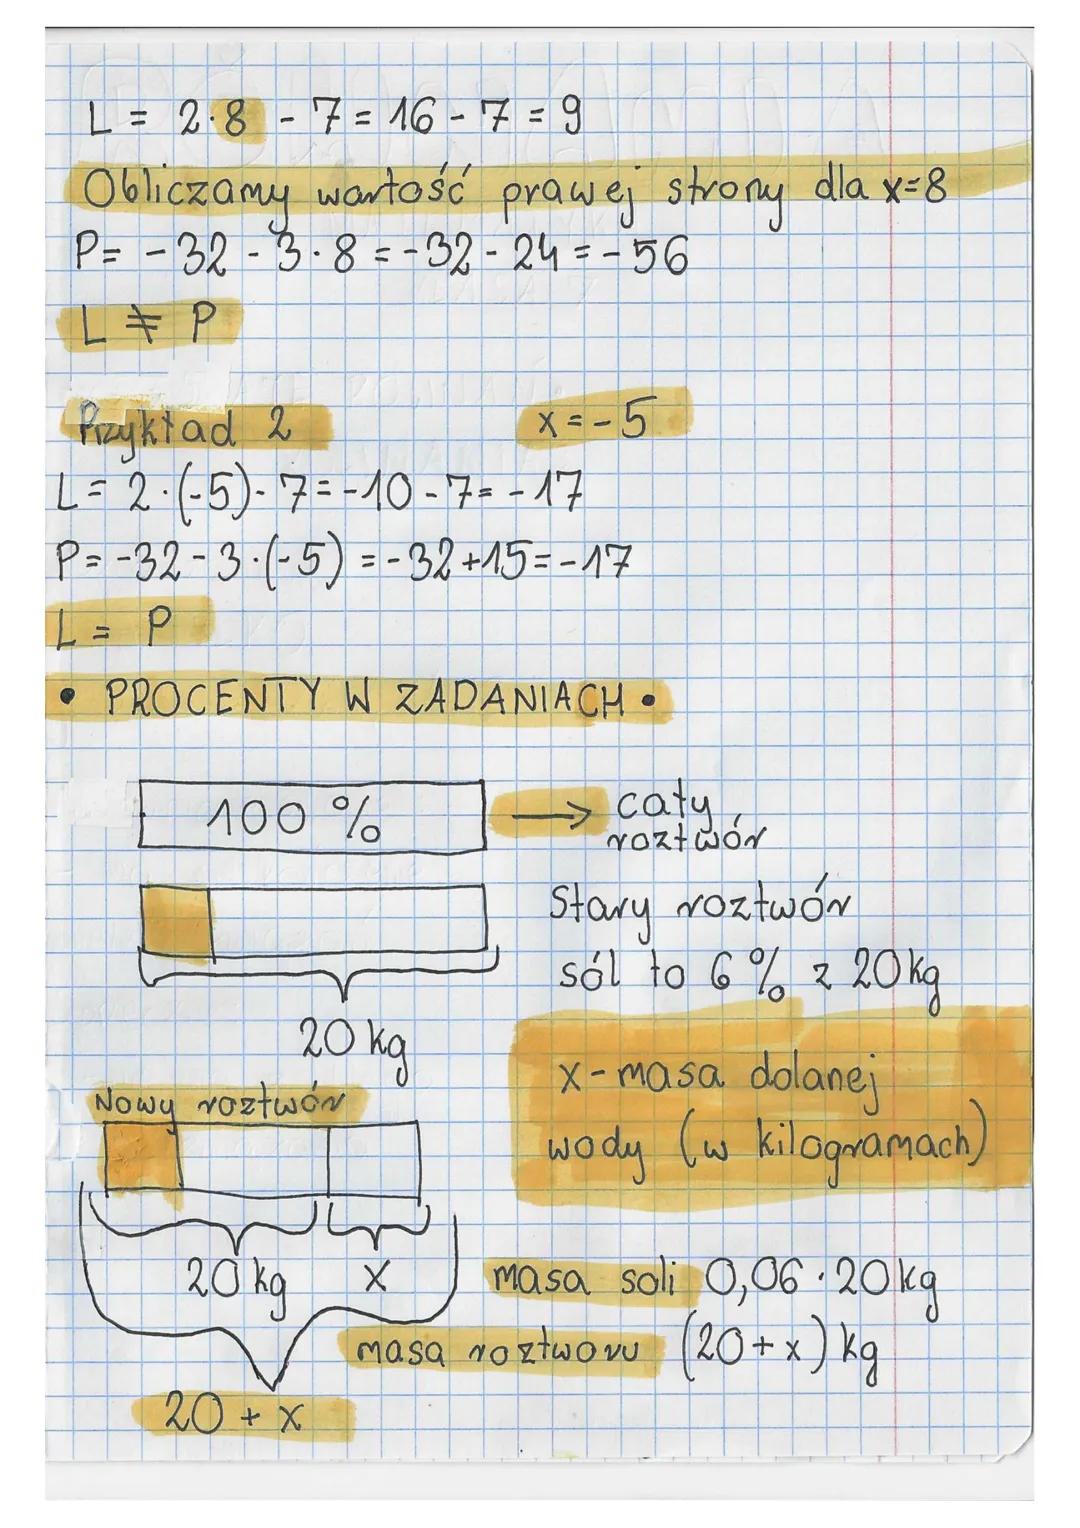 L = 2·8 - 7 = 16 - 7 = 9
Obliczamy wartość prawej strony dla x=8
P= -32 - 3·8 = -32 - 24 = -56
L ≠ P
Przykład 2 x=-5
L= 2·(-5)- 7= -10 -7= -17
P= -32 - 3·(-5) = -32+15= -17
L = P
• PROCENTY W ZADANIACH •
100 % → cały
roztwór
Stary roztwór
sól to 6% z 20kg
20 kg
x - masa dolanej
wody (w kilogramach)
Nowy roztwór
20 kg x
masa soli 0,06·20kg
masa roztworu (20+x) kg
20 + x